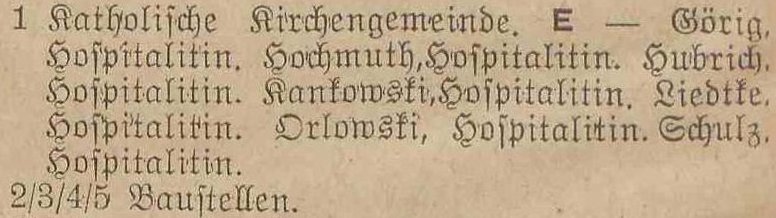 1 Katholiſche Kirchengemeinde. E — Görig,
Hoſpitalitin. Hochmuth,Hoſpitalitin. Hubrich,
Hoſpitalitin. Kankowski,Hoſpitalitin. Liedtke,
Hoſpitalitin. Orlowski, Hoſpitalitin. Schulz,
Hoſpitalitin.
2/3/4/5 Bauſtellen.